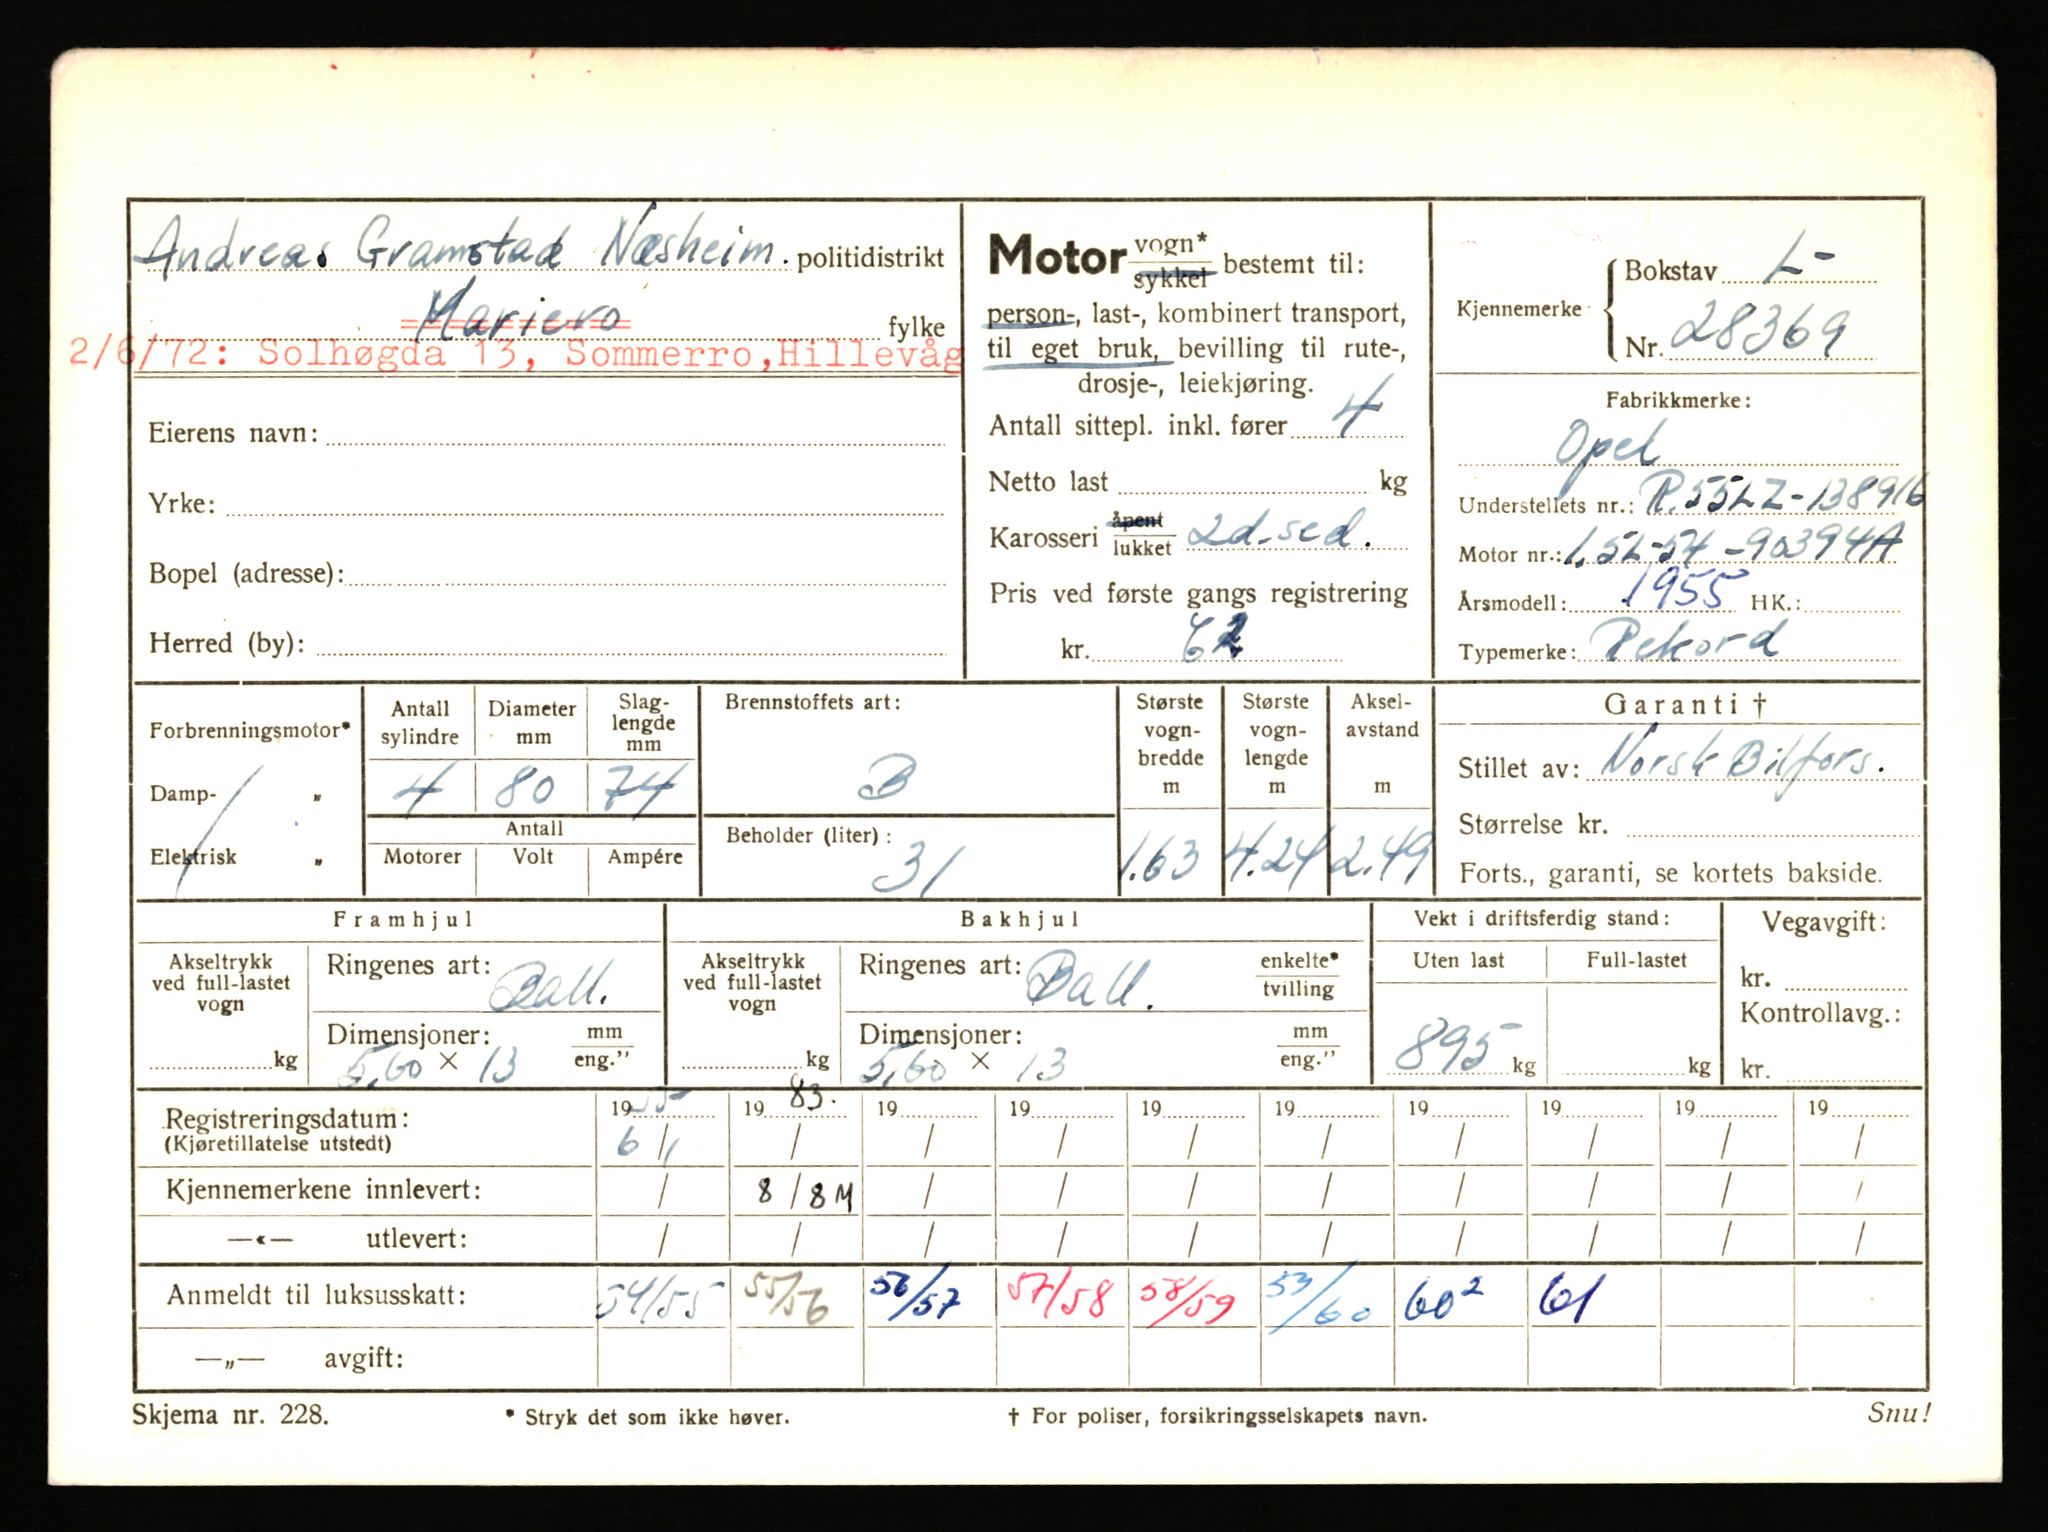 Andreas Gramstad Næsheim. politidistrikt
Mariero fylke
2/6/72: Solhøgda 13, Sommerro, Hillevåg
Eierens navn:
Yrke:
Bopel (adresse):
Herred (by):
Motor vogn* / sykkel bestemt til:
person-, last-, kombinert transport,
til eget bruk, bevilling til rute-,
drosje-, leiekjøring.
Antall sittepl. inkl. fører 4
Netto last kg
Karosseri åpent / lukket 2d-sed.
Pris ved første gangs registrering
kr. 62
Kjennemerke { Bokstav L-
Nr. 28369
Fabrikkmerke:
Opel
Understellets nr.: R.55LZ-138916
Motor nr.: 1.5L-54-90394A
Årsmodell: 1955 HK.:
Typemerke: Rekord
Forbrenningsmotor*
Damp- „
Elektrisk „
Antall sylindre Diameter mm Slag-lengde mm
4 80 74
Antall
Motorer Volt Ampére
Brennstoffets art:
B
Beholder (liter):
31
Største vogn-bredde m Største vogn-lengde m Aksel-avstand m
1.63 4.24 2.49
Garanti †
Stillet av: Norsk Bilfors.
Størrelse kr.
Forts., garanti, se kortets bakside.
Framhjul
Akseltrykk ved full-lastet vogn kg
Ringenes art: Ball.
Dimensjoner: mm / eng."
5,60 × 13
Bakhjul
Akseltrykk ved full-lastet vogn kg
Ringenes art: Ball. enkelte* / tvilling
Dimensjoner: mm / eng."
5,60 × 13
Vekt i driftsferdig stand:
Uten last Full-lastet
895 kg kg
Vegavgift:
kr.
Kontrollavg.:
kr.
Registreringsdatum: 1955 1983. 19 19 19 19 19 19 19 19
(Kjøretillatelse utstedt) 6/1 / / / / / / / / /
Kjennemerkene innlevert: / 8/8 M / / / / / / / /
—«— utlevert: / / / / / / / / / /
Anmeldt til luksusskatt: 54/55 55/56 56/57 57/58 58/59 53/60 60² 61
—„— avgift:
Skjema nr. 228. * Stryk det som ikke høver. † For poliser, forsikringsselskapets navn. Snu!